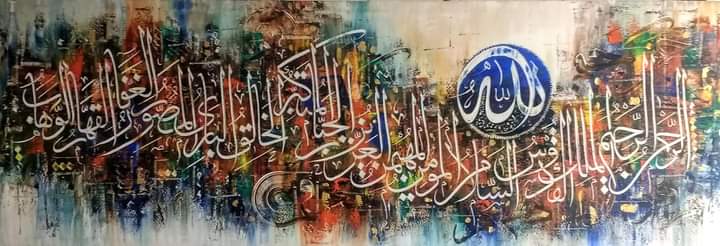 الله
الرحمن الرحيم الملك القدوس السلام المؤمن المهيمن العزيز الجبار المتكبر الخالق البارئ المصور الغفار القهار الوهاب